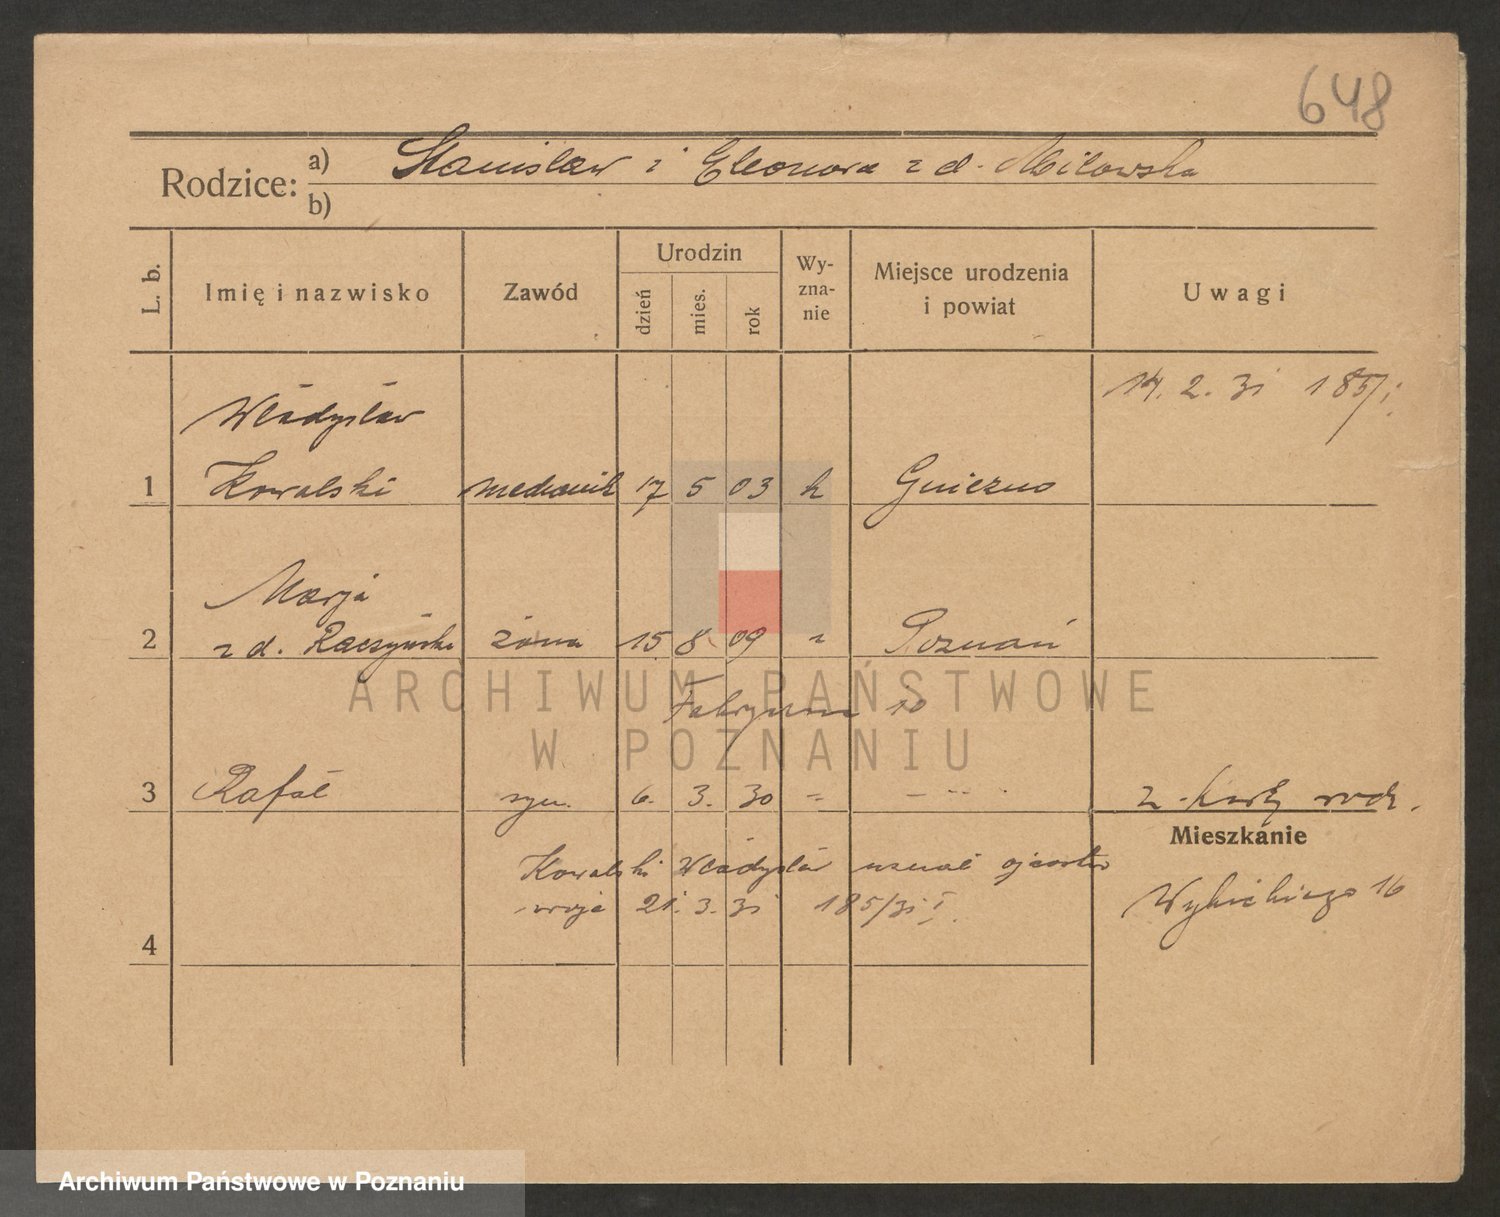 648
Rodzice: a) Stanisław i Eleonora z d. Miłowska
b)
L. b. Imię i nazwisko Zawód Urodzin dzień mies. rok Wy-zna-nie Miejsce urodzenia i powiat Uwagi
14. 2. 31 185/I
Władysław
1 Kowalski mechanik 17 5 03 k Gniezno
Marja
2 z d. Raczyńska żona 15 8 09 " Poznań
ARCHIWUM PAŃSTWOWE
Fabryczna 10
W POZNANIU
3 Rafał syn. 6. 3. 30 " - " - z karty rodz.
Mieszkanie
Kowalski Władysław uznał ojcostwo
swoje 21. 3. 31 185/31 I
Wybickiego 16
4
Archiwum Państwowe w Poznaniu